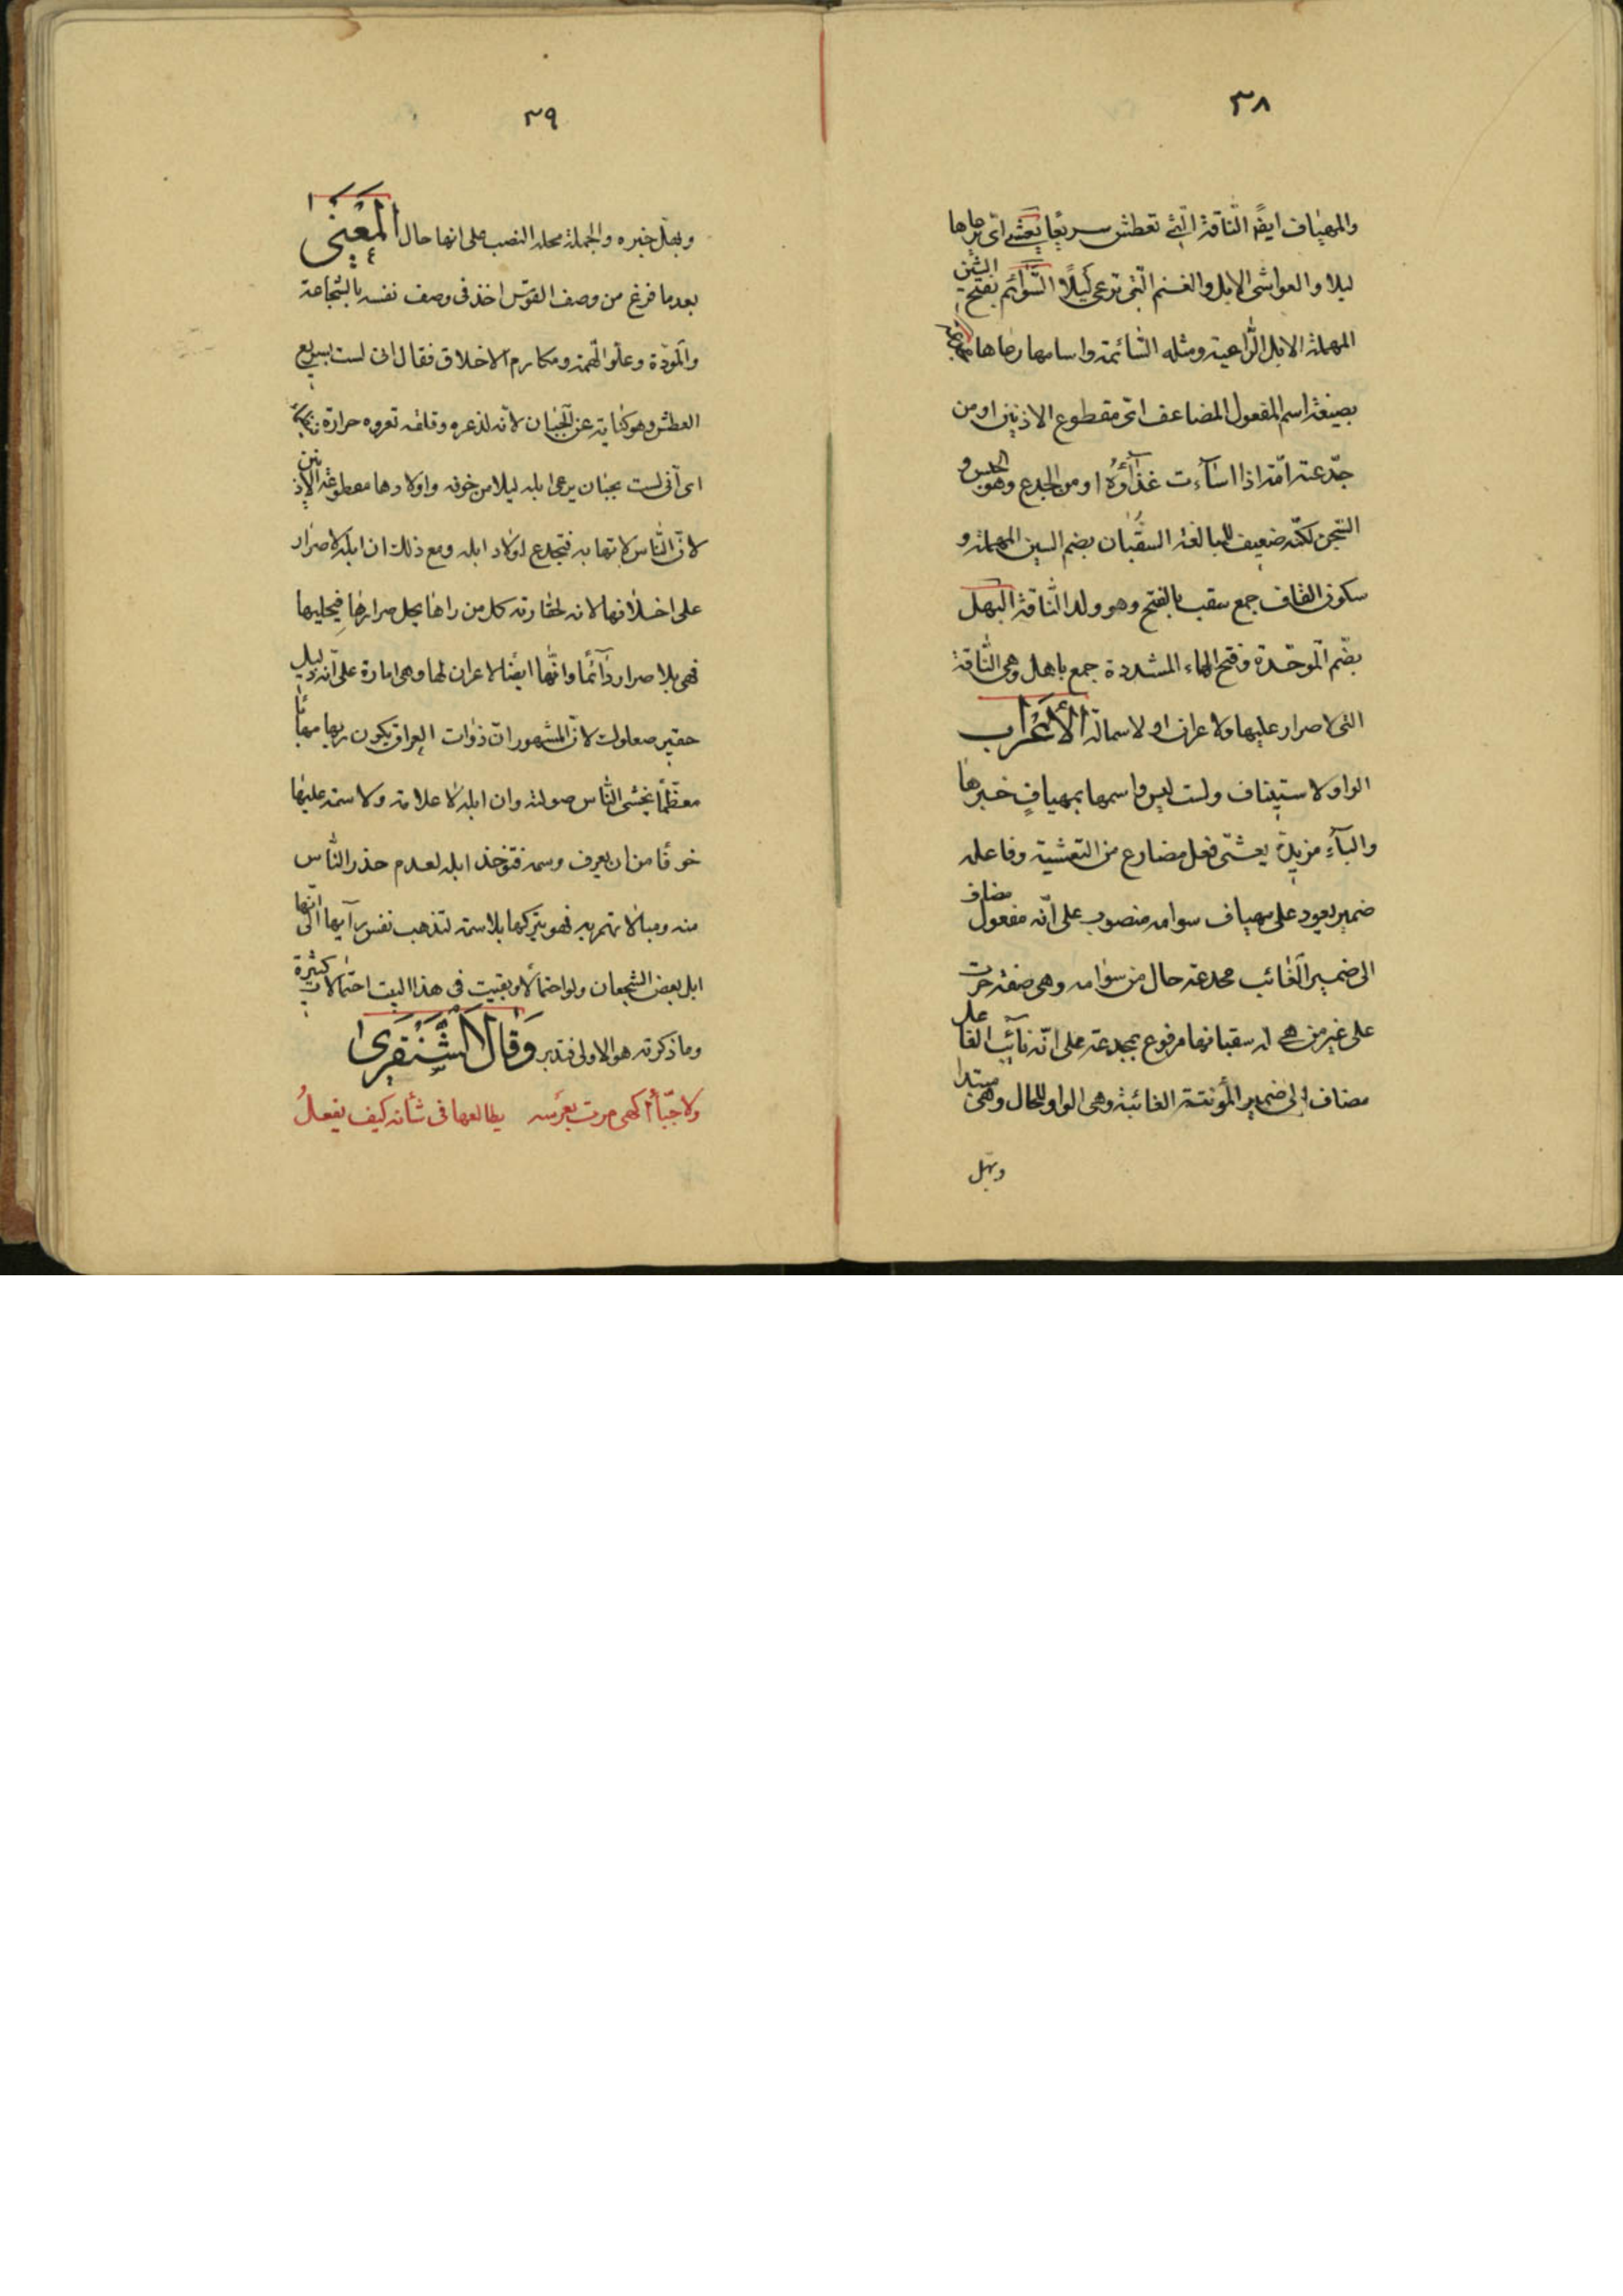 ٣٨
والمهياف ايضًا النّاقة الّتى تعطش سريعًا يعشى اى يرعاها
ليلا والعواشى الابل والغنم الّتى ترعى ليلًا السّوائم بفتح السّين
المهملة الابل الرّاعية ومثله السّائمة واسامها رعاها
بصيغة اسم المفعول المضاعف اى مقطوع الاذنين او من
جدّعته امّه اذا اساءت غذاؤه او من الجدع وهو الحبس و
السّجن لكنّه ضعيف للمبالغة السقبان بضم السين المهملة و
سكون القاف جمع سقب بالفتح وهو ولد النّاقة البهل
بضّم الموحّدة وفتح الهاء المشددة جمع باهل وهى النّاقة
التى لا صرار عليها ولا عران او لا سمة الأعراب
الواو لاستيناف ولست ليس واسمها بمهياف خبرها
والباء مزيدة يعشّى فعل مضارع من التعشية وفاعله
ضمير يعود على مهياف سوامه منصوب على انّه مفعول مضاف
الى ضمير الغائب مجدعة حال من سوامه وهى صفة جرت
على غير من هى له سقبانها مرفوع بمجدعة على انّه نائب الفاعل
مضاف الى ضمير المؤنثة الغائبة وهى الواو للحال وهى مبتدا
وبهّل
٣٩
وبهّل خبره والجملة محلها النصب على انها حال المعنى
بعد ما فرغ من وصف القوس اخذ فى وصف نفسه بالشّجاعة
والمودّة وعلو الهمّة ومكارم الاخلاق فقال انى لست بسريع
العطش وهو كناية عن الجبان لانّه لذعره وقلقه تعروه حرارة
اى انى لست بجبان يرعى ابله ليلا من خوفه واولادها مقطوعة الاذنين
لانّ النّاس لا تهابه فتجدع اولاد ابله ومع ذلك ان ابله لا صرار
على اخلافها لانه لحقارته كل من راها يحل صرارها فيحلبها
فهى بلا صرار دائما وانّها ايضا لا عران لها وهى امارة على انّه ذليل
حقير صعلوك لانّ المشهور انّ ذوات العران يكون ربها مهابًا
معظّمًا يخشى النّاس صولته وان ابله لا علامة ولا سمة عليها
خوفًا من ان يعرف وسمه فتوخذ ابله لعدم حذر النّاس
منه ومبالاتهم به فهو يتركها بلا سمة لتذهب نفس رآيها الى انّها
ابل بعض الشجعان ولو احتمالًا وبقيت فى هذا البيت احتمالات كثيرة
وما ذكرته هو الاولى فتدبر وقال الشنفرى
ولا جبّأ اكهى مرب بعرسه يطالعها فى شأنه كيف يفعلُ